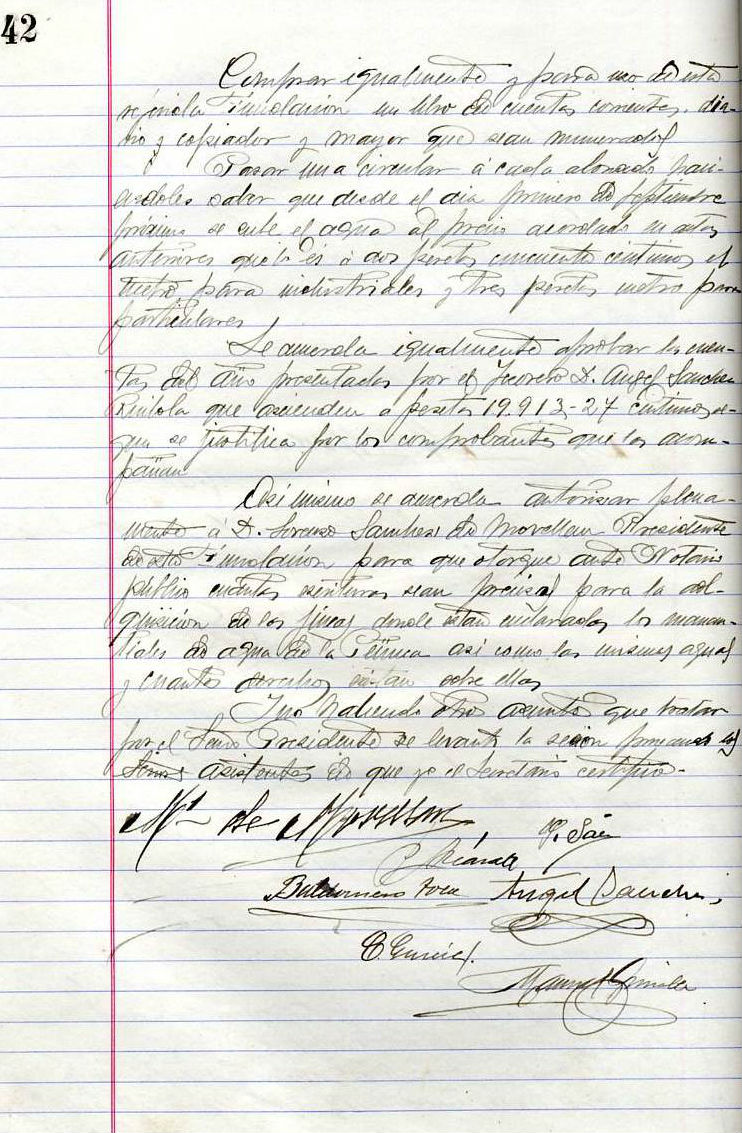 42
Comprar igualmente y para uso de esta
referida fundación un libro de cuentas corrientes, dia-
rio y copiador y mayor que sean numerados
Pasar una circular á cada abonado haci-
endoles saber que desde el dia primero de Septiembre
próximo se sube el agua al precio acordado en actas
anteriores que lo es á dos pesetas cincuenta centimos el
metro para industriales y tres pesetas metro para
particulares
Se acuerda igualmente aprobar las cuen-
tas del año presentadas por el Tesorero D. Angel Sanchez
que ascienden a pesetas 19.913-27 centimos se-
gun se justifica por los comprobantes que las acom-
pañan
Asi mismo se acuerda autorizar plena-
mente á D. Lorenzo Sanchez de Movellan Presidente
de esta Fundación para que otorgue ante Notario
público cuantas escrituras sean precisas para la ad-
quisición de las fincas donde estan enclavados los manan-
tiales de agua de la asi como las mismas aguas
y cuantos derechos sobre ellas
Y no habiendo otros asuntos que tratar
por el Señor Presidente se levantó la sesion firmando los
Señores asistentes de que yo el Secretario certifico.
de Movellan
P. Saiz
Baldomero Angel Sanchez
E. Garcia
Manuel